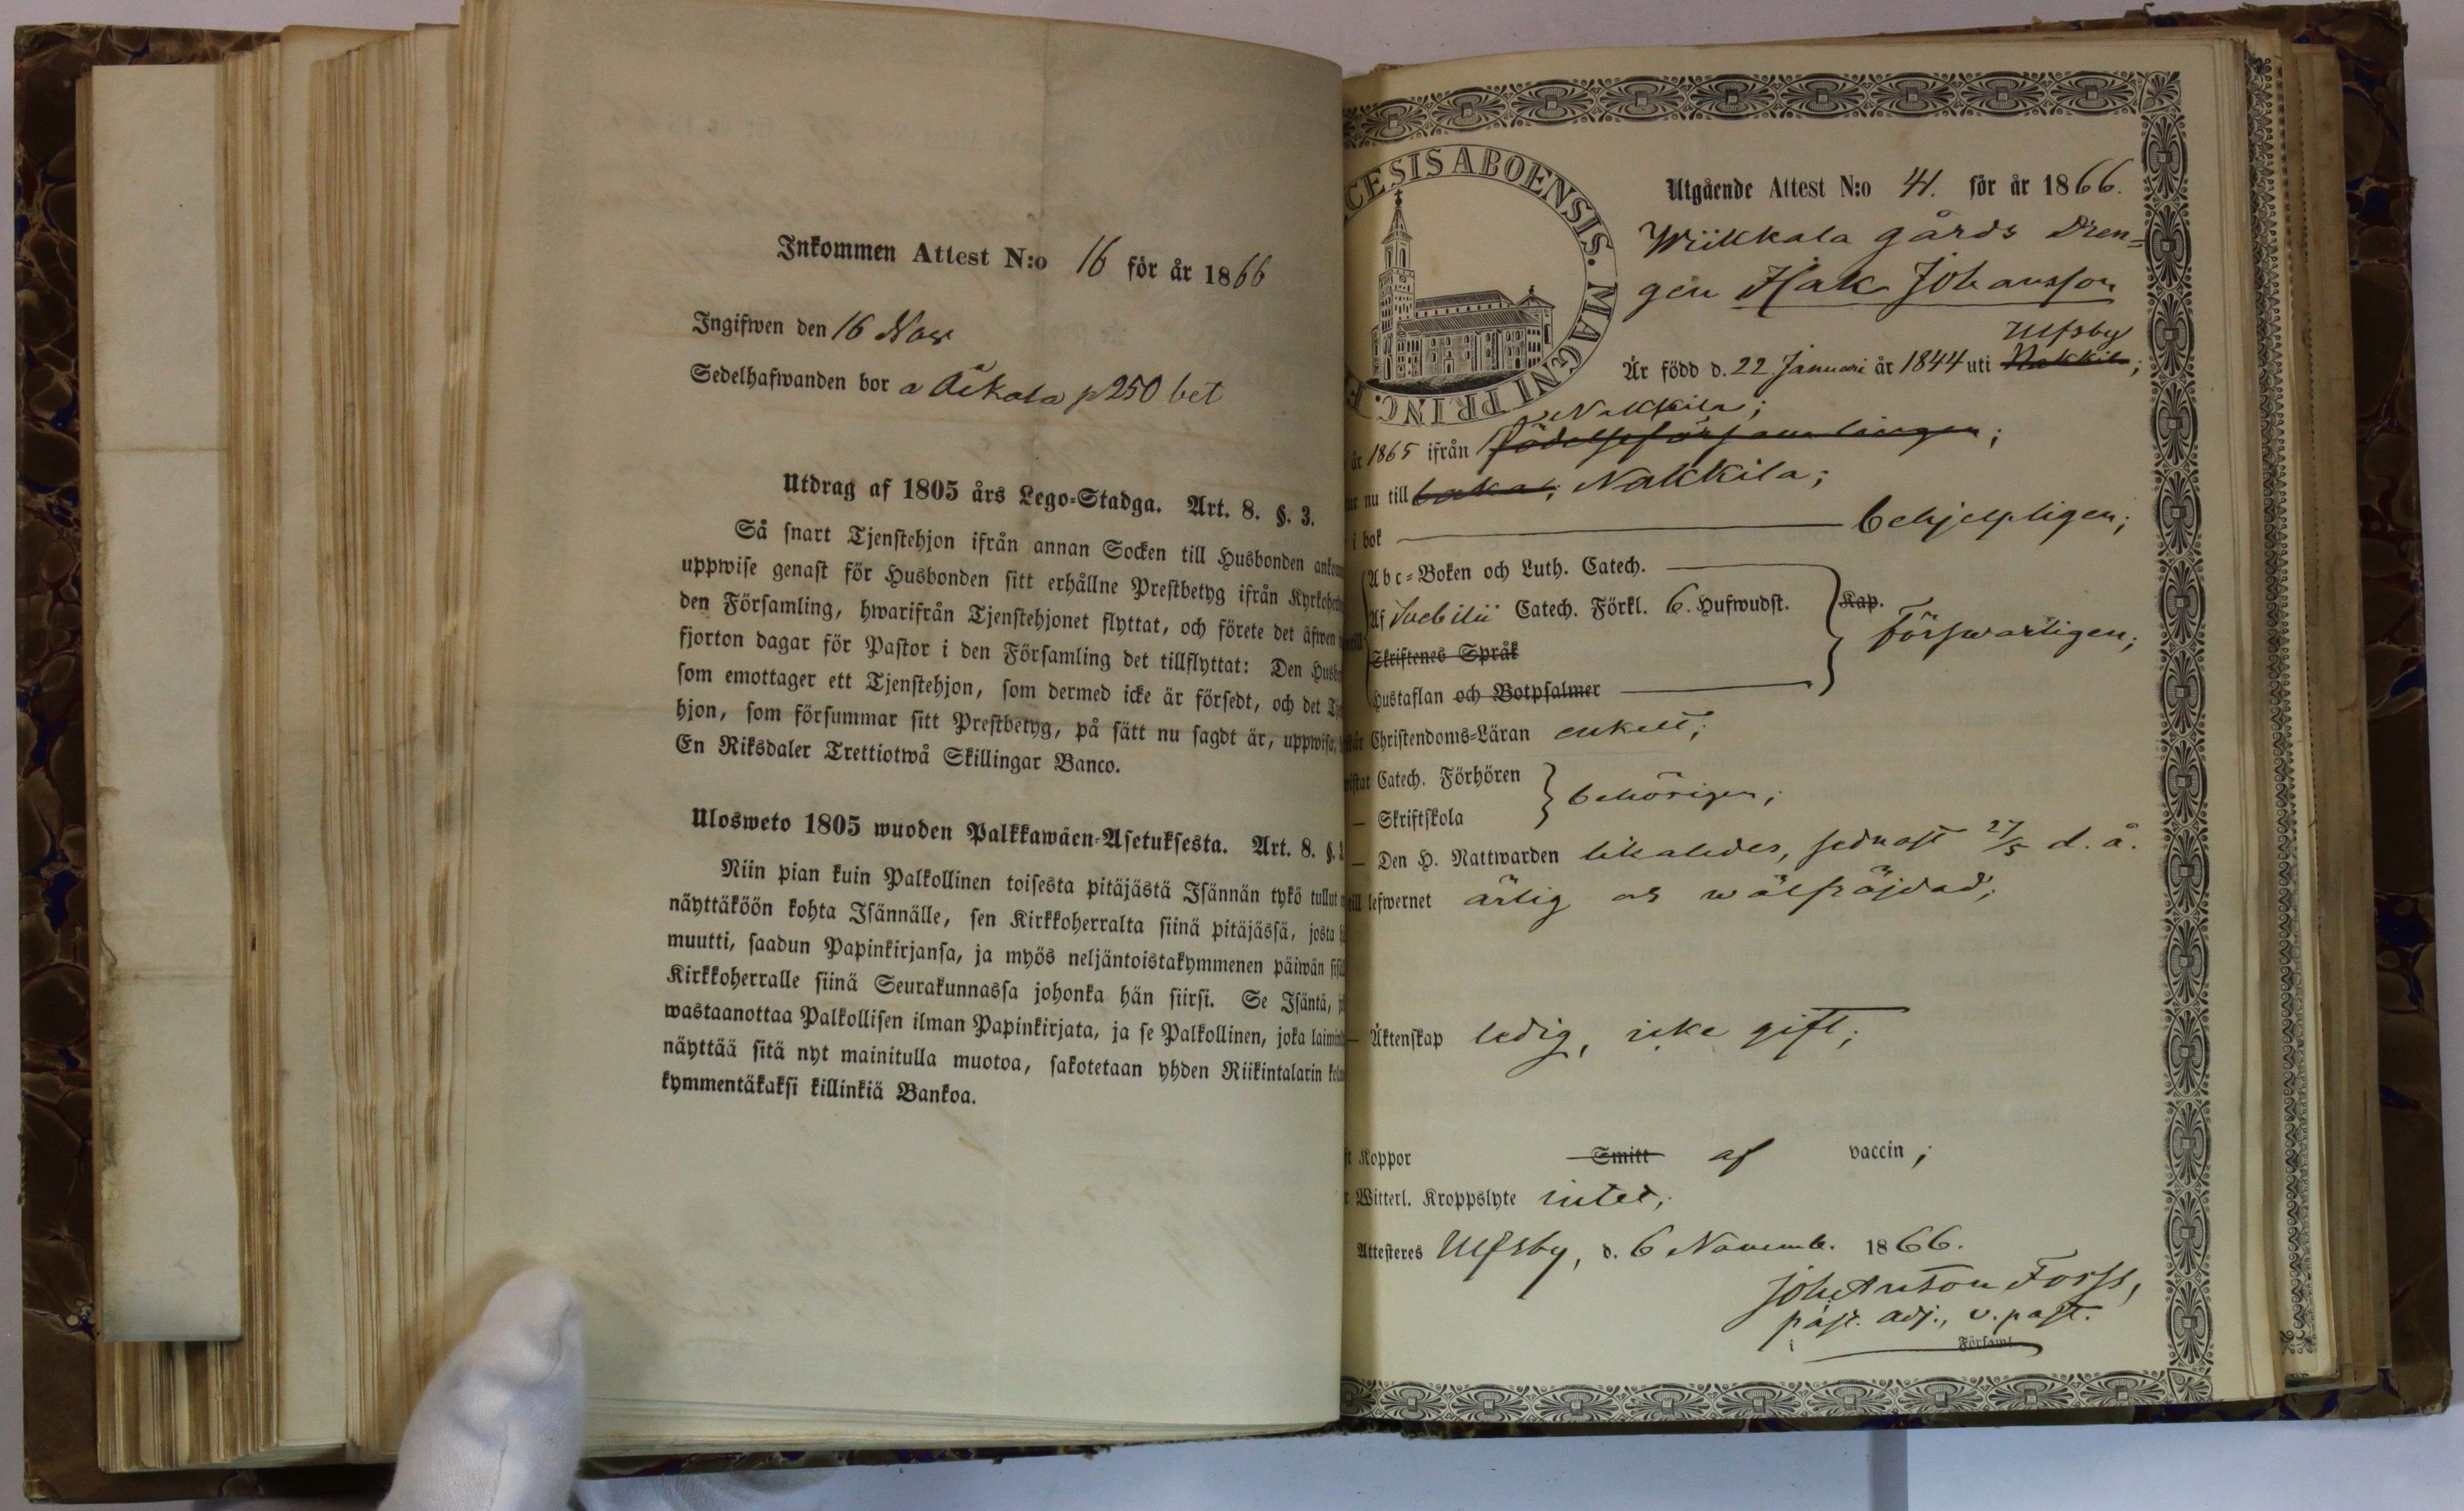 Inkommen Attest N:o 16 för år 1866
Ingifwen den 16 Nov
Sedelhafwanden bor a p 250 bet
Utdrag af 1805 års Lego-Stadga. Art. 8. §. 3.
Så snart Tjenstehjon ifrån annan Socken till Husbonden
uppwise genast för Husbonden sitt erhållne Prestbetyg ifrån
den Församling, hwarifrån Tjenstehjonet flyttat, och förete det äfwen
fjorton dagar för Pastor i den Församling det tillflyttat: Den
som emottager ett Tjenstehjon, som dermed icke är försedt, och det
hjon, som försummar sitt Prestbetyg, på sätt nu sagdt är, uppwisa,
En Riksdaler Trettiotwå Skillingar Banco.
Ulosweto 1805 wuoden Palkkawäen-Asetuksesta. Art. 8. §.
Niin pian kuin Palkollinen toisesta pitäjästä Isännän tykö tullut
näyttäköön kohta Isännälle, sen Kirkkoherralta siinä pitäjässä, josta
muutti, saadun Papinkirjansa, ja myös neljäntoistakymmenen päiwän
Kirkkoherralle siinä Seurakunnassa johonka hän siirsi. Se Isäntä,
wastaanottaa Palkollisen ilman Papinkirjata, ja se Palkollinen, joka
näyttää sitä nyt mainitulla muotoa, sakotetaan yhden Riikintalarin
kymmentäkaksi killinkiä Bankoa.
CESIS ABOENSIS. MAGNI PRINC. F
Utgående Attest N:o 41. för år 1866.
Wiikkala gårds Dren=
gen Isak Johansson
Ulfsby
Är född d. 22 Januari år 1844 uti Nakkila;
Nakkila;
år 1865 ifrån födelseförsamlingen;
nu till baka; Nakkila;
i bok behjelpligen;
Abc=Boken och Luth. Catech.
Af Svebilii Catech. Förkl. 6. Hufwudst. Kap.
förswarligen;
Skriftenes Språk
Hustaflan och Botpsalmer
Christendoms=Läran enkelt;
Catech. Förhören
behörigen;
— Skriftskola
— Den H. Nattwarden likaledes, sednast 27/5 d. å.
till lefwernet ärlig och wälfräjdad;
— Äktenskap ledig, icke gift;
Koppor Smitt af vaccin;
Witterl. Kroppslyte intet;
Attesteres Ulfsby, d. 6 Novemb. 1866.
Joh. Anton Forss,
past. adj., v. past.
i Församl.